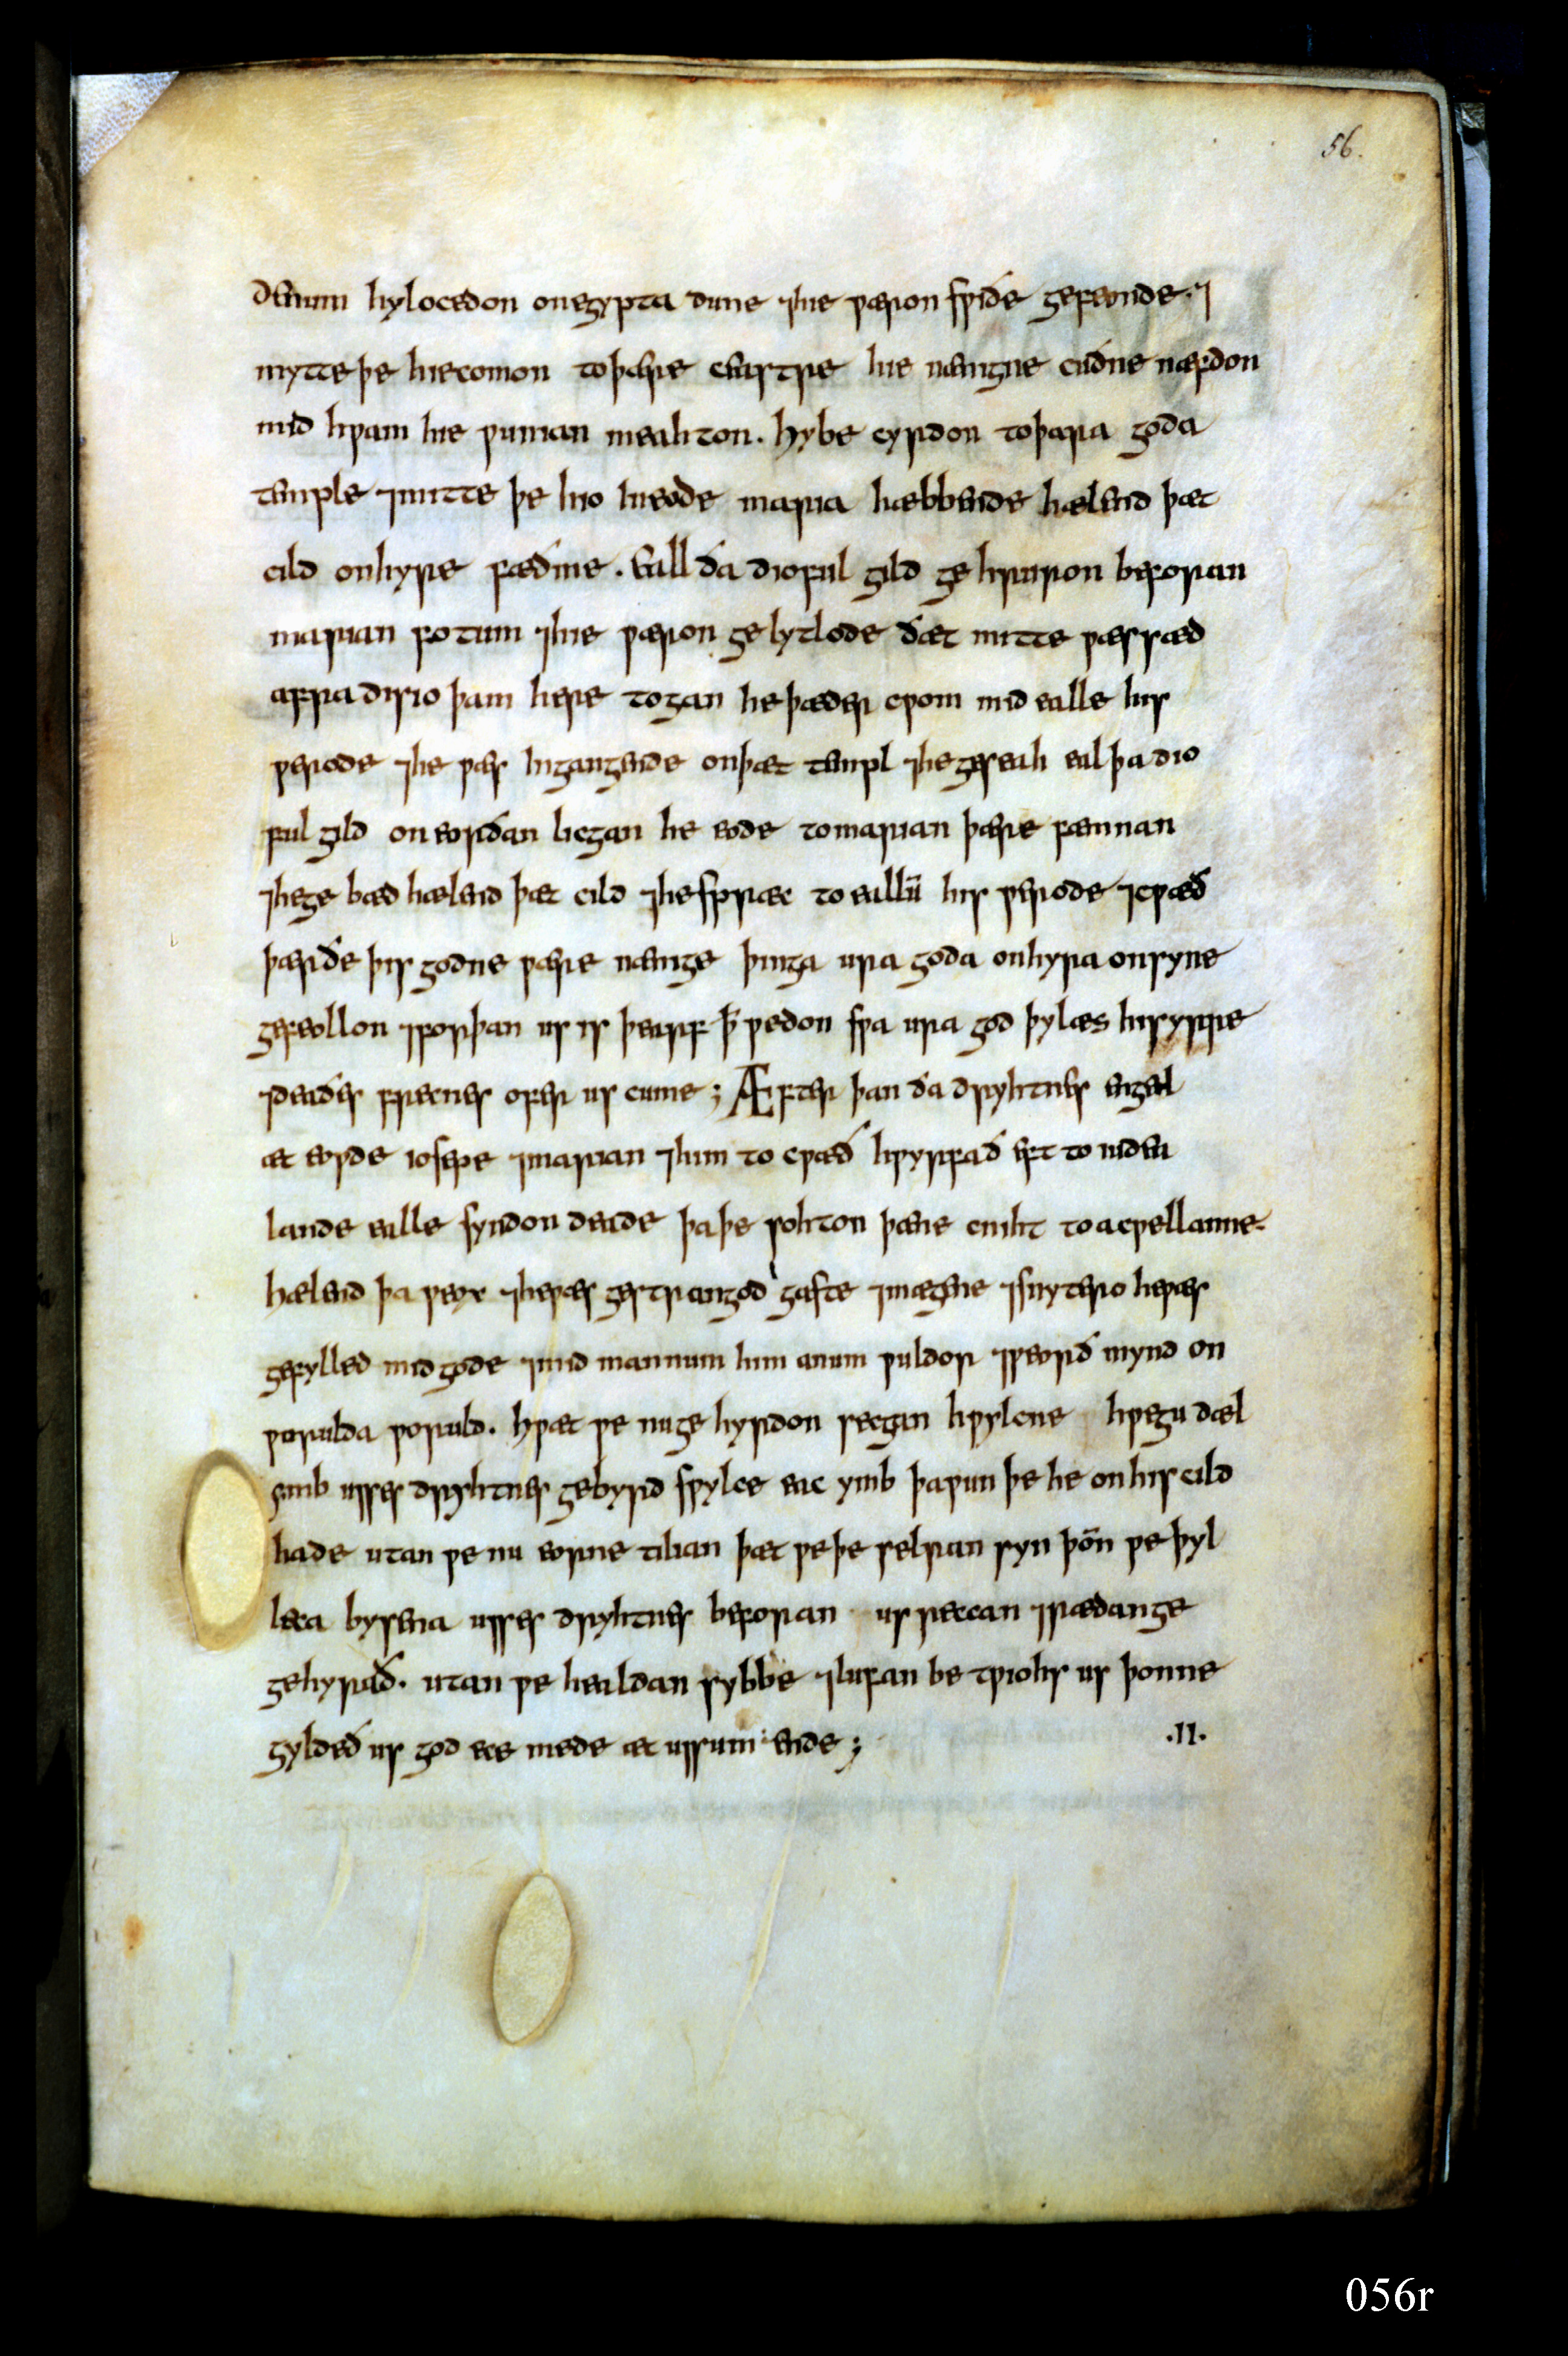 56.
denum hy locedon on egypta dune ⁊ hie wæron swiðe gefeonde · ⁊
mytte þe hie comon to þære ceastre hie nænigne cuðne næfdon
mid hwam hie wunian meahton . hy be cyrdon to þara goda
temple ⁊ mitte þe hio hie ode maria hæbbende hælend þæt
cild on hyre fæðme . eall ða dioful gild ge hruron beforan
marian fotum ⁊ hie wæron ge lytlode ðæt mitte wæs sæd
affradisio þam here togan he þæder cwom mid ealle his
werode ⁊ he wæs in gangende on þæt templ ⁊ he geseah eal þa dio
ful gild on eorðan licgan he eode to marian þære fæmnan
⁊ he ge bæd hælend þæt cild ⁊ he spræc to eallū his werode ⁊ cwæð
þær ðe þis god ne wære nænige þinga ura goda on hyra onsyne
gefeollon ⁊ forþan us is þearf ꝥ we don swa ura god þy læs hus yrre
⁊ deaðes frecnes ofer us cume ; Æfter þan ða dryhtnes engel
æt eowde iosepe ⁊ marian ⁊ him to cwæð hwyrfað eft to iudea
lande ealle syndon deade þa þe sohton þæne cniht to acwellanne ·
hælend þa weox ⁊ he wæs gestrangod gaste ⁊ mægene ⁊ snytero he wæs
gefylled mid gode ⁊ mid mannum him anum wuldor ⁊ weorð mynd on
worulda woruld . hwæt we nu ge hyrdon secgan hwylcne hwegu dæl
ymb usses dryhtnes gebyrd swylce eac ymb þa wun þe he on his cild
hade utan we nu eorne tilian þæt we þe selran syn þōn we þyl
leca bysena usses dryhtnes beforan us reccan ⁊ rædan ge
gehyrað . utan we healdan sybbe ⁊ lufan be twiohs us þonne
gyldeð us god ece mede æt ussum ende ;
.II.
056r